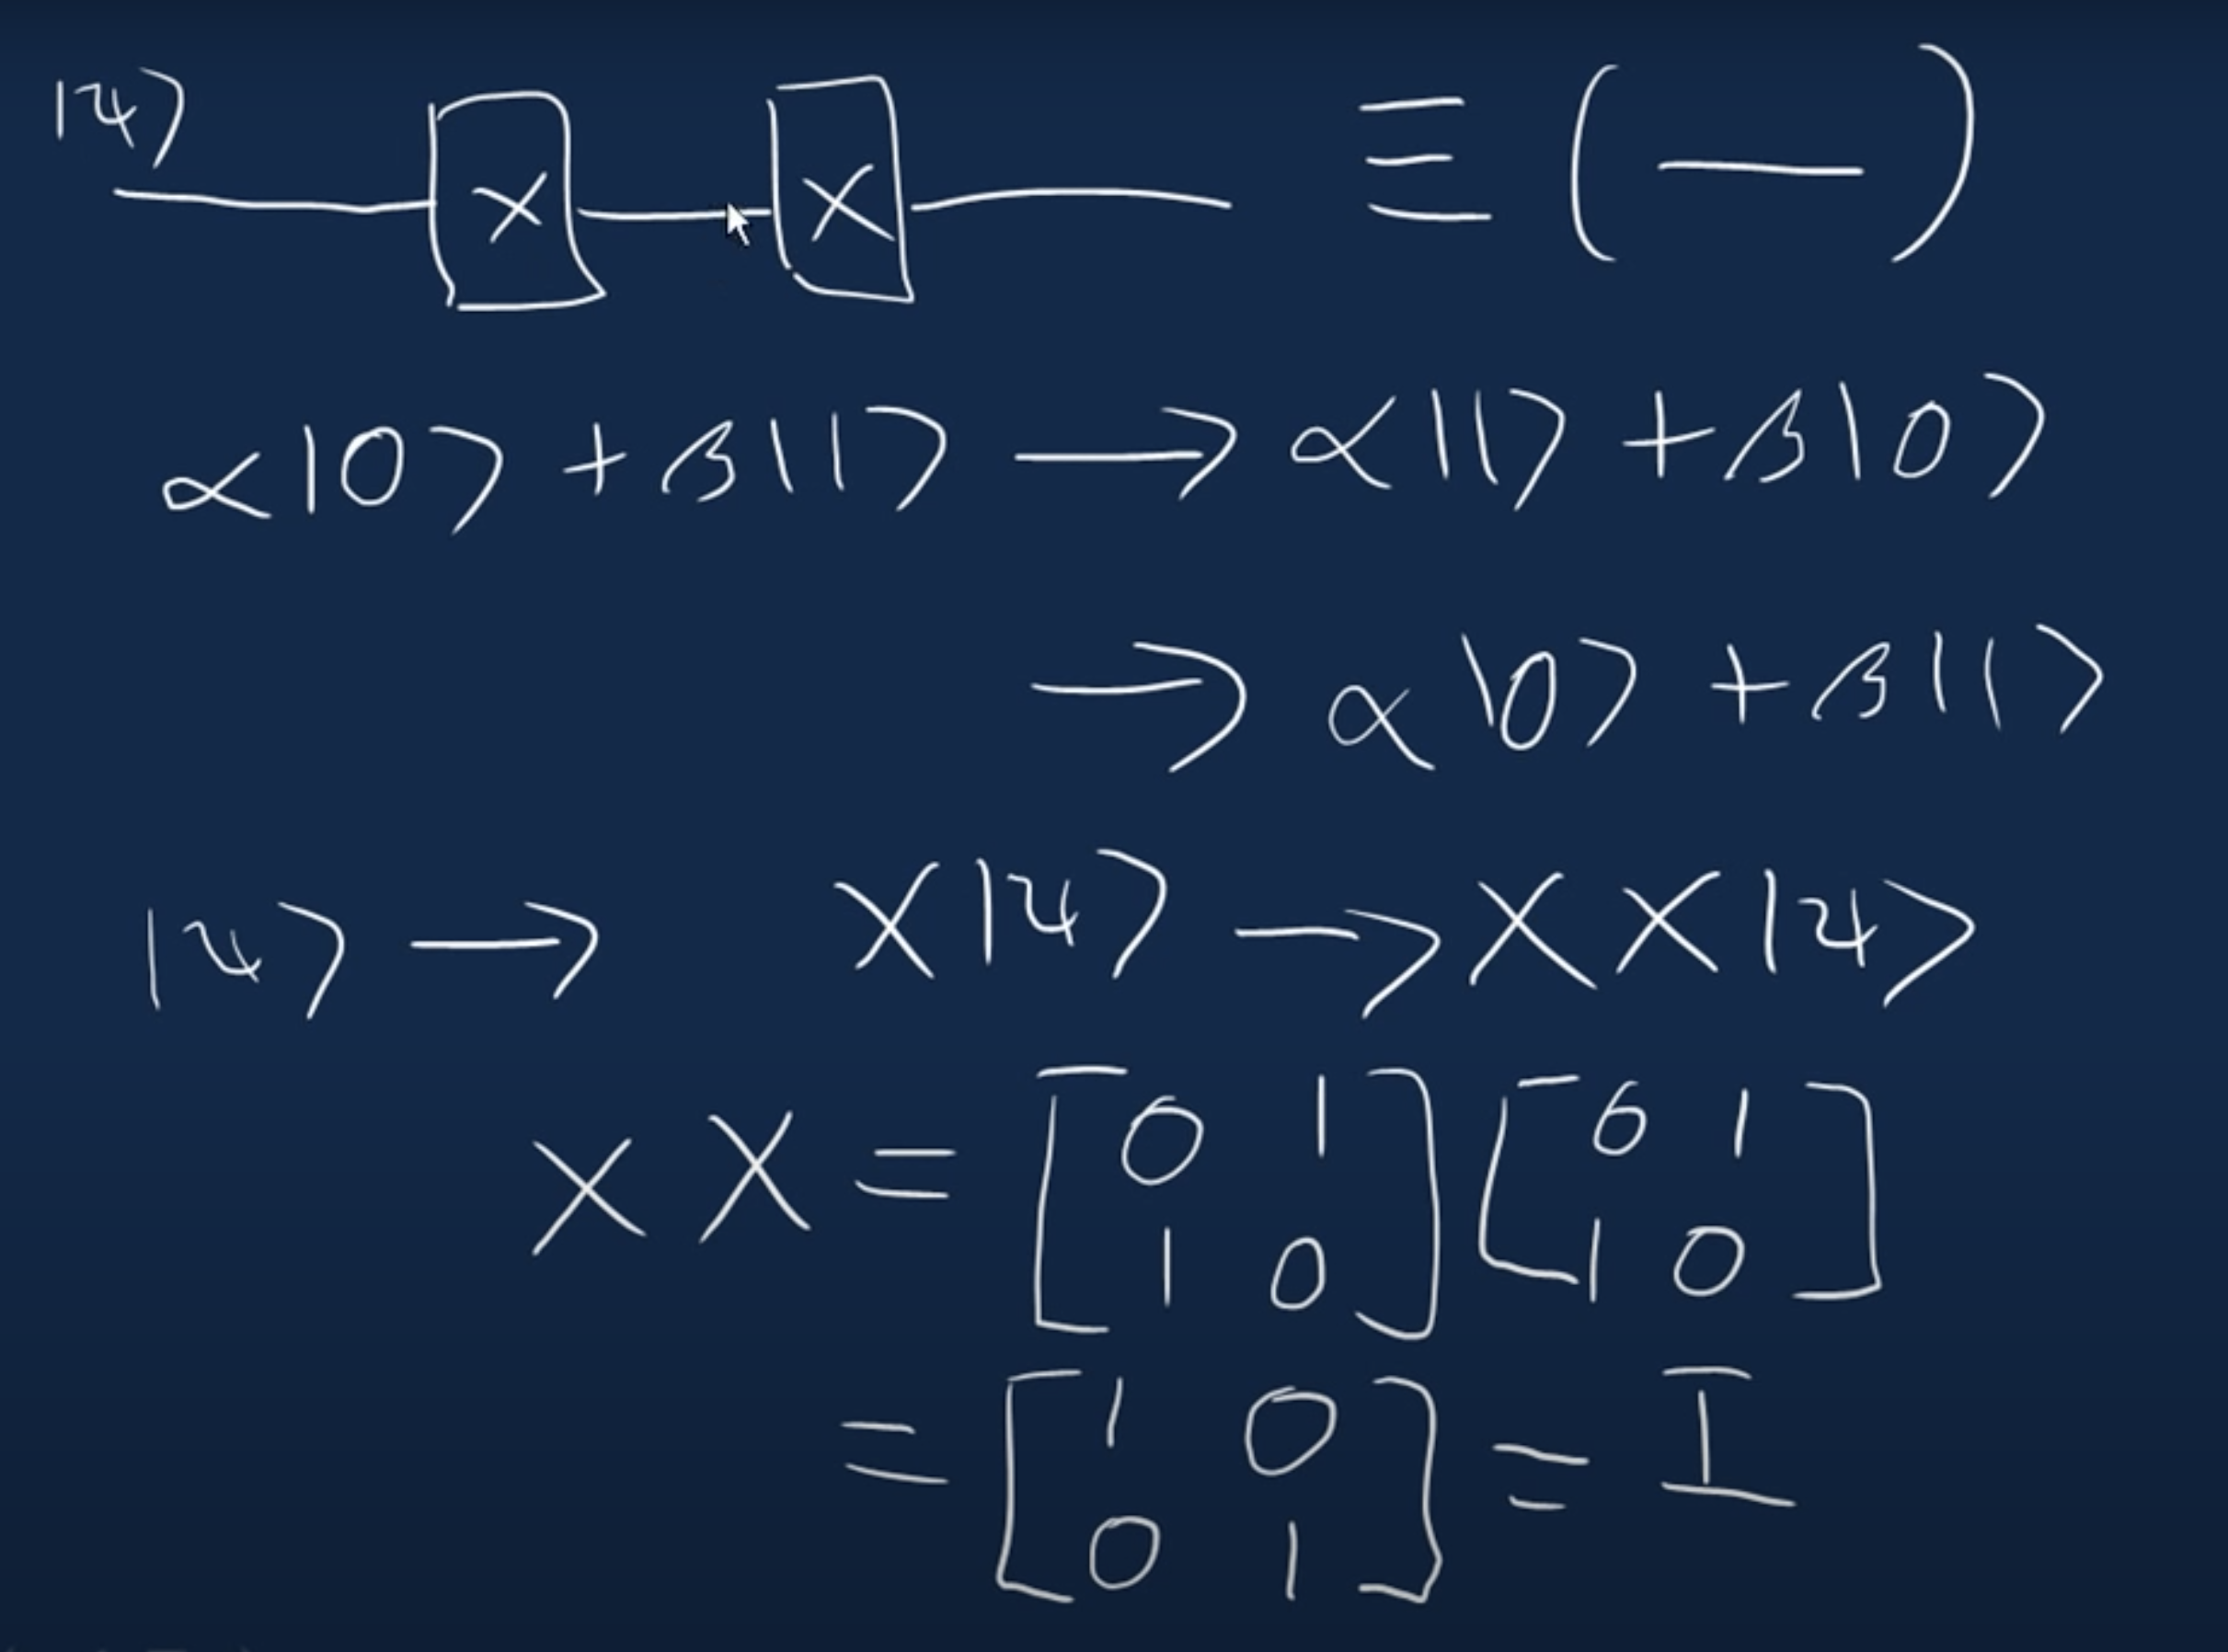 |ψ⟩
X X ≡ ( — )
α|0⟩ + β|1⟩ → α|1⟩ + β|0⟩
→ α|0⟩ + β|1⟩
|ψ⟩ → X|ψ⟩ → XX|ψ⟩
XX = [0 1; 1 0] [0 1; 1 0]
= [1 0; 0 1] = I